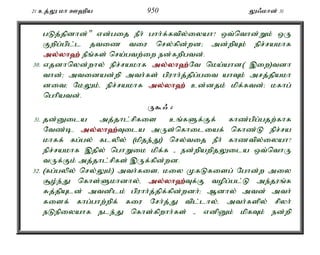 21 உத்லு மா ஊஹிய 950 லுக்மான் 31
படுத்தினான்” என்பதை நீர் பார்க்கவில்லையா? ஒவ்வொன்றும் ஒரு
குறிப்பிட்ட தவணை வரை செல்கின்றன; அன்றியும் நிச்சயமாக
அல்லாஹ் நீங்கள் செய்பவற்றை நன்கறிபவன்.
30. எதனாலென்றால் நிச்சயமாக அல்லாஹ்வே மெய்யான( இறை)வனா
வான்; அவனையன்றி அவர்கள் பிரார்த்திப்பவை யாவும் அசத்தியமா
னவை; மேலும், நிச்சயமாக அல்லாஹ் உன்னதம் மிக்கவன்; மகாப்
பெரியவன்.
ருகூஃ 4
31. தன்னுடைய அத்தாட்சிகளை உங்களுக்குக் காண்பிப்பதற்காக
வேண்டி, அல்லாஹ்வுடைய அருள்கொடையைக் கொண்டு நிச்சய
மாகக் கப்பல் கடலில் (மிதந்து) செல்வதை நீர் காணவில்லையா?
நிச்சயமாக இதில் பொறுமை மிக்க , நன்றியறிதலுடைய ஒவ்வொரு
வருக்கும் அத்தாட்சிகள் இருக்கின்றன.
32. (கப்பலில் செல்லும்) அவர்களை, மலை முகடுகளைப் போன்ற அலை
சூழ்ந்து கொள்ளுமானால், அல்லாஹ்வுக்கு வழிப்பட்டு அந்தரங்க
சுத்தியுடன் அவனிடம் பிரார்த்திக்கின்றனர்; ஆனால் அவன் அவர்
களைக் காப்பாற்றிக் கரை சேர்த்து விட்டால், அவர்களில் சிலர்
நடுநிலையாக நடந்து கொள்கிறார்கள் . எனினும் மிகவும் நன்றி